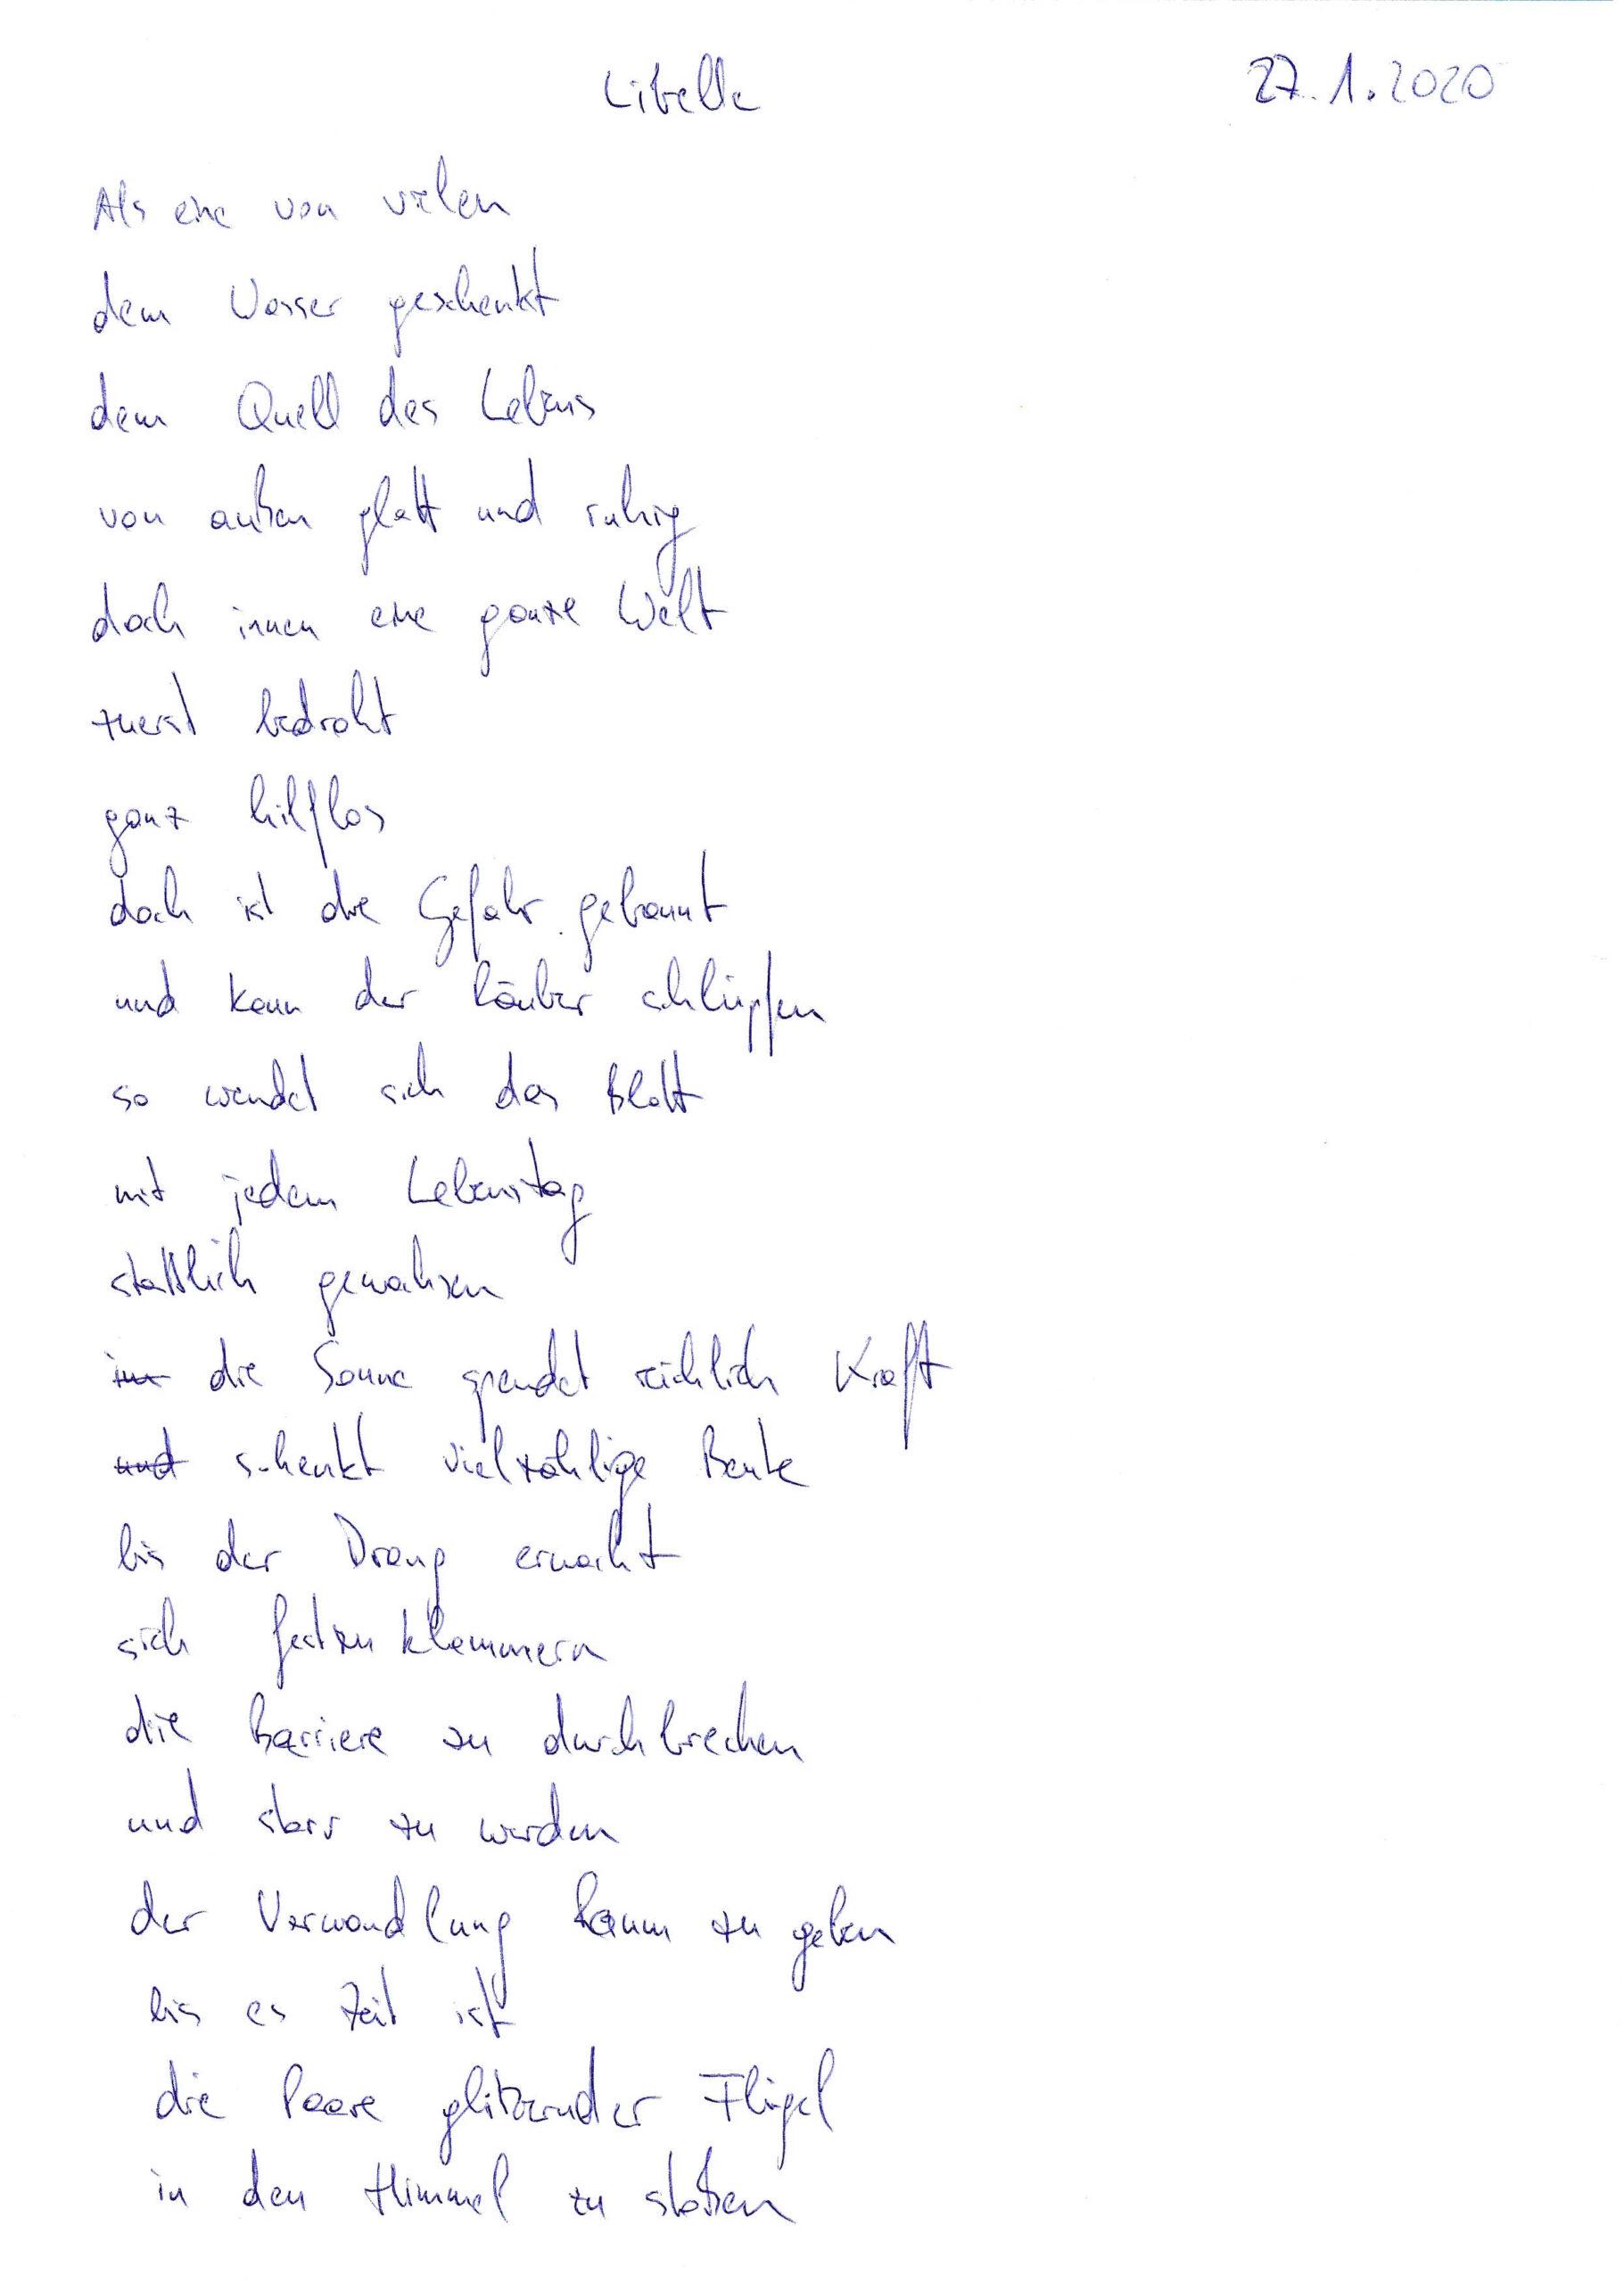 Libelle 27.1.2020
Als eine von vielen
dem Wasser geschenkt
dem Quell des Lebens
von außen glatt und ruhig
doch innen eine ganze Welt
zuerst bedroht
ganz hilflos
doch ist die Gefahr gebannt
und kann der Räuber schlüpfen
so wendet sich das Blatt
mit jedem Lebenstag
stattlich gewachsen
im die Sonne spendet reichlich Kraft
und schenkt vielzählige Beute
bis der Drang erwacht
sich festzuklammern
die Barriere zu durchbrechen
und starr zu werden
der Verwandlung Raum zu geben
bis es Zeit ist
die Paare glitzernder Flügel
in den Himmel zu stoßen